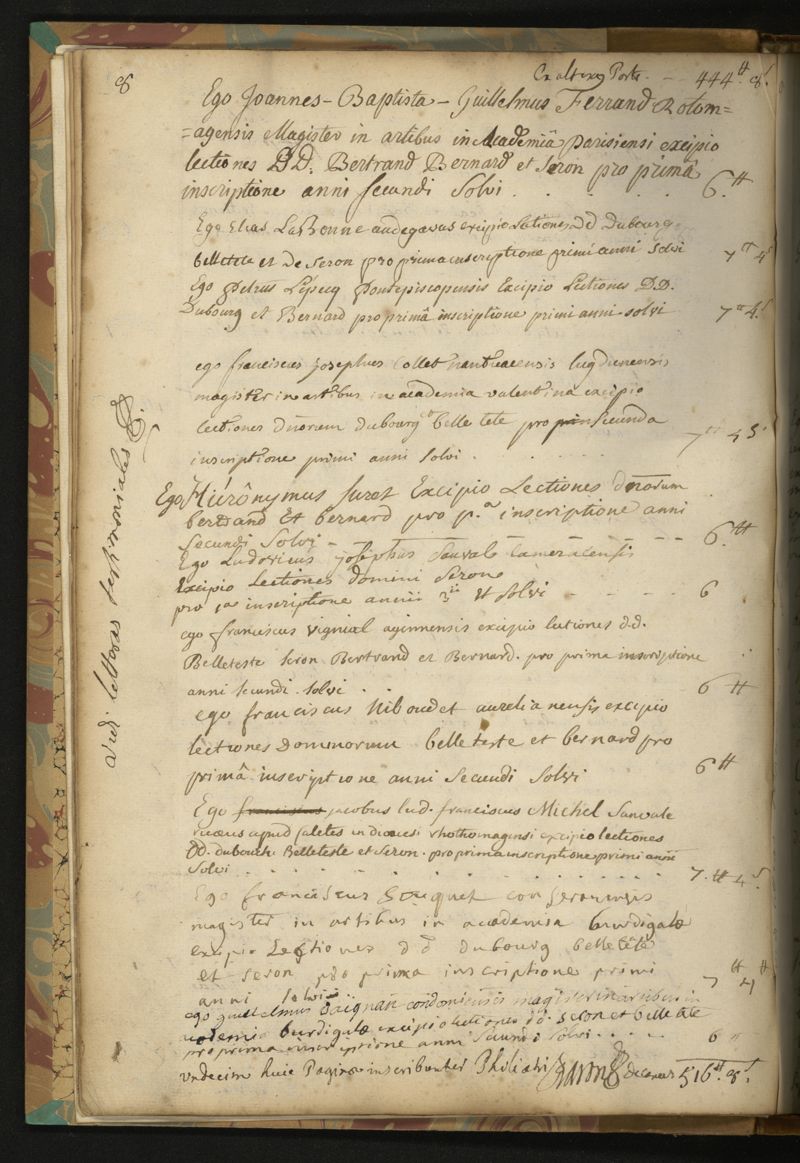 8
Ex altera Parte. -- 444# 8s.
Ego Joannes-Baptista-Guillelmus Ferrand Rotom=
=agensis Magister in artibus in Academiâ Parisiensi excipio
lectiones DD. Bertrand Bernard et Seron pro primâ
inscriptione anni secundi Solvi . . . . . . 6.#
Ego Elias LaBonne andegavus excipio lectiones dd Dubourg
belletete et De Seron pro prima inscriptione primi anni solvi 7# 4s
Ego Petrus Lepecq Pontepiscopensis Excipio Lectiones D.D.
Dubourg et Bernard pro primâ inscriptione primi anni solvi 7# 4.s
ego franciscus josephus Collet nantuacensis lugdunensis
magister in artibus in academia valentina excipio
lectiones dnorum dubourg et belle tete pro secunda
inscriptione primi anni solvi . . . . . 7# 4s.
Ego Hiérônymus Excipio Lectiones dnorum
bertrand Et bernard pro p.a inscriptione anni
Secundi Solvi - - - - - 6.#
Ego Ludovicus josephus Sauvale Cameracensis
Excipio Lectiones domini Seron
pro 1a inscriptione annii 3ii et solvi - - - - 6
ego franciscus vignial aginnensis excipio lectiones d.d.
Belleteste seron Bertrand et Bernard. pro prima inscriptione
anni secundi solvi . . 6 #
ego franciscus Niboudet aurelianensis excipio
lectiones Domnorum belleteste et bernard pro
primâ inscriptione anni Secundi Solvi 6 #
Ego jacobus lud. franciscus Michel Sanvale
apud Caletes in diœcesi rhothomagensi excipio lectiones
DD. dubourk Belleteste et Seron. pro prima inscriptione primi anni
Solvi . . . . . . . . . . 7.# 4s.
Ego franciscus
magister in artibus in academia burdigalæ
excipio Lectiones d d dubourg belletête
et seron pro prima inscriptione primi
anni solvi 7# 4#
ego guillelmus Daignan condomiensis magister in artibus in
academia burdigalæ excipio lectiones dd. seron et belle tête
pro prima inscriptione anni Secundi solvi . . . . 6 #
undecim huic Paginæ inscribuntur Philiatri decanus 516.# 8s.
vidi litteras testimoniales